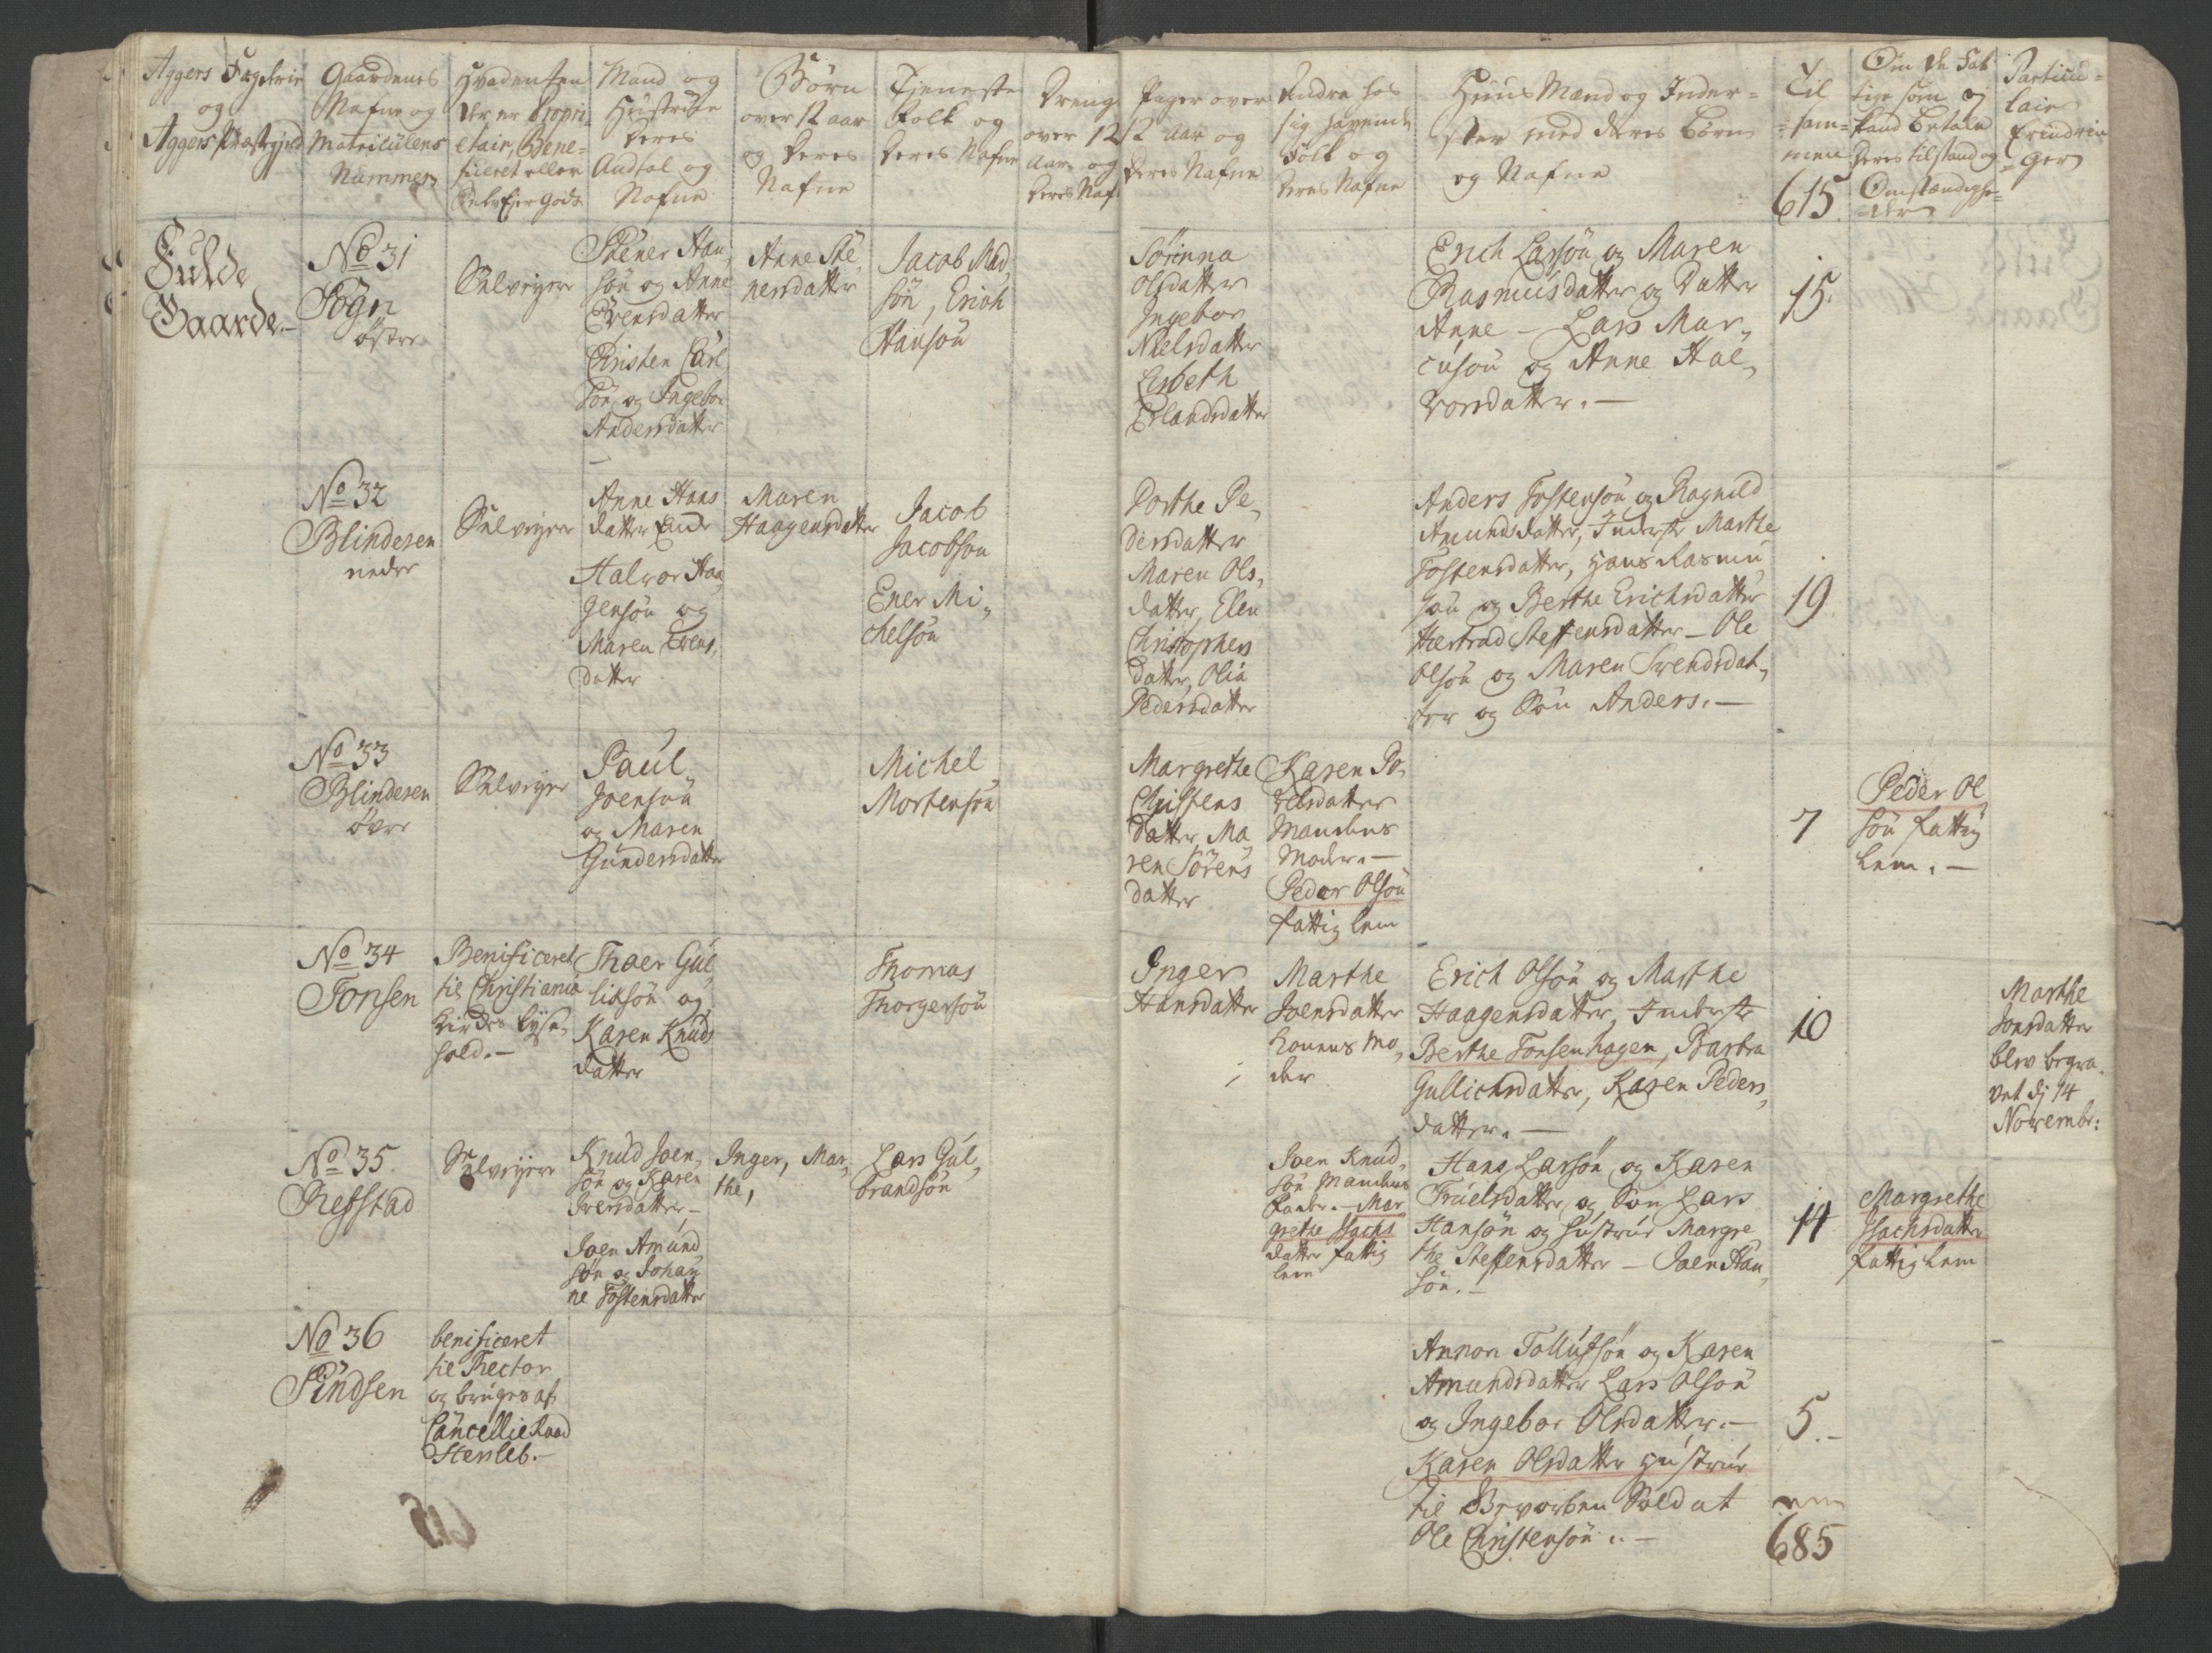 Aggers Fogderie
og
Aggers Præstegield
Gaardenes
Nafne og
Matriculens
Nummer
Hvad enten
der er Propri-
etair, Bene-
ficeret eller
Selv Ejer Gods
Mand og
Hustrue
deres
Andtal og
Nafne
Børn
over 12 aar
og deres
Nafne
Tieneste
Folk og
deres Nafne
Dreng
over 12
Aar og
deres Naf
Piger over
12 aar og
deres Nafne
Andre hos
sig havende
Folk og
deres Nafne
Huus Mænd og Inder-
ster med deres Børn
og Nafne
Til
sam-
men
615
Om de Fat
tige som ej
kand betale
deres tilstand og
Omstændighe-
der
Particu-
laire
Erindrin
ger
Fulde
Gaarde.-
No 31
Sogn
østre
Selvejere
Stener Han
søn og Anne
Evensdatter
Christen Carl
søn og Ingebor
Andersdatter
Anne Ste
nersdatter
Jacob Mad
søn, Erich
Hansøn
Sørinna
Olsdatter
Ingebor
Nielsdatter
Lisbeth
Erlandsdatter
Erich Larsøn og Maren
Rasmusdatter og Datter
Anne - Lars Mar-
cusøn og Anne Hal-
vorsdatter. -
15.
No 32
Blindesen
nedre
Selvejere
Anne Hans
datter Enke
Halvor Haa
gensøn og
Maren Evens
datter
Maren
Haagensdatter
Jacob
Jacobsøn
Ener Mi-
chelsøn
Dorthe Pe-
dersdatter
Maren Ols-
datter, Elen
Christophers
datter, Olia
Pedersdatter
Anders Tostensøn og Ragnild
Amundsdatter, Inderste Marthe
Tostensdatter, Hans Rasmu
søn og Berthe Erichsdatter
Hertrad Steffensdatter - Ole
Olsøn og Maren Svendsdat-
ter og Søn Anders. -
19
No 33
Blindesen
øvre
Selvejere
Paul
Joensøn
og Maren
Gundersdatter
Michel
Mortensøn
Margrethe
Christens
datter Ma
ren Sørens
datter
Karen Po-
velsdatter
Mandens
Moder. -
Peder Olsøn
fattig lem
7
Peder Ol
søn fattig
lem. -
No 34
Tonsen
Benificeret
til Christiania
Kirkes lyse-
hold. -
Thoer Gul
liksøn og
Karen Knuds
datter
Thomas
Thorgersøn
Inger
Hansdatter
Marthe
Joensdatter
Konens Mo
der
Erich Olsøn og Marthe
Haagensdatter, Inderste
Berthe Tonsenhagen, Barbra
Gullichsdatter, Karen Peders
datter. -
10
Marthe
Jonsdatter
blev begra-
vet dj 14
Novembr:
No 35
Refstad
Selvejere
Knud Joen
søn og Karen
Iversdatter -
Joen Amund
søn og Johan
ne Tostensdatter
Inger, Mar-
the,
Lars Gul-
brandsøn
Joen Knud
søn Mandens
Fader. - Mar
grethe Isachs
datter fattig
lem
Hans Larsøn og Karen
Truelsdatter og Søn Lars
Hansøn og Hustrue Margre
the Steffensdatter - Joen Han
søn. -
14
Margrethe
Isachsdatter
fattig lem
No 36
Sindsen
benificeret
til Rector
og bruges af
Cancellie Raad
Hersleb. -
Annon Tollufsøn og Karen
Amundsdatter Lars Olsøn
og Ingebor Olsdatter. -
Karen Olsdatter Hustrue
til Hvorben Soldat
Ole Christensøn. -
5.-
685